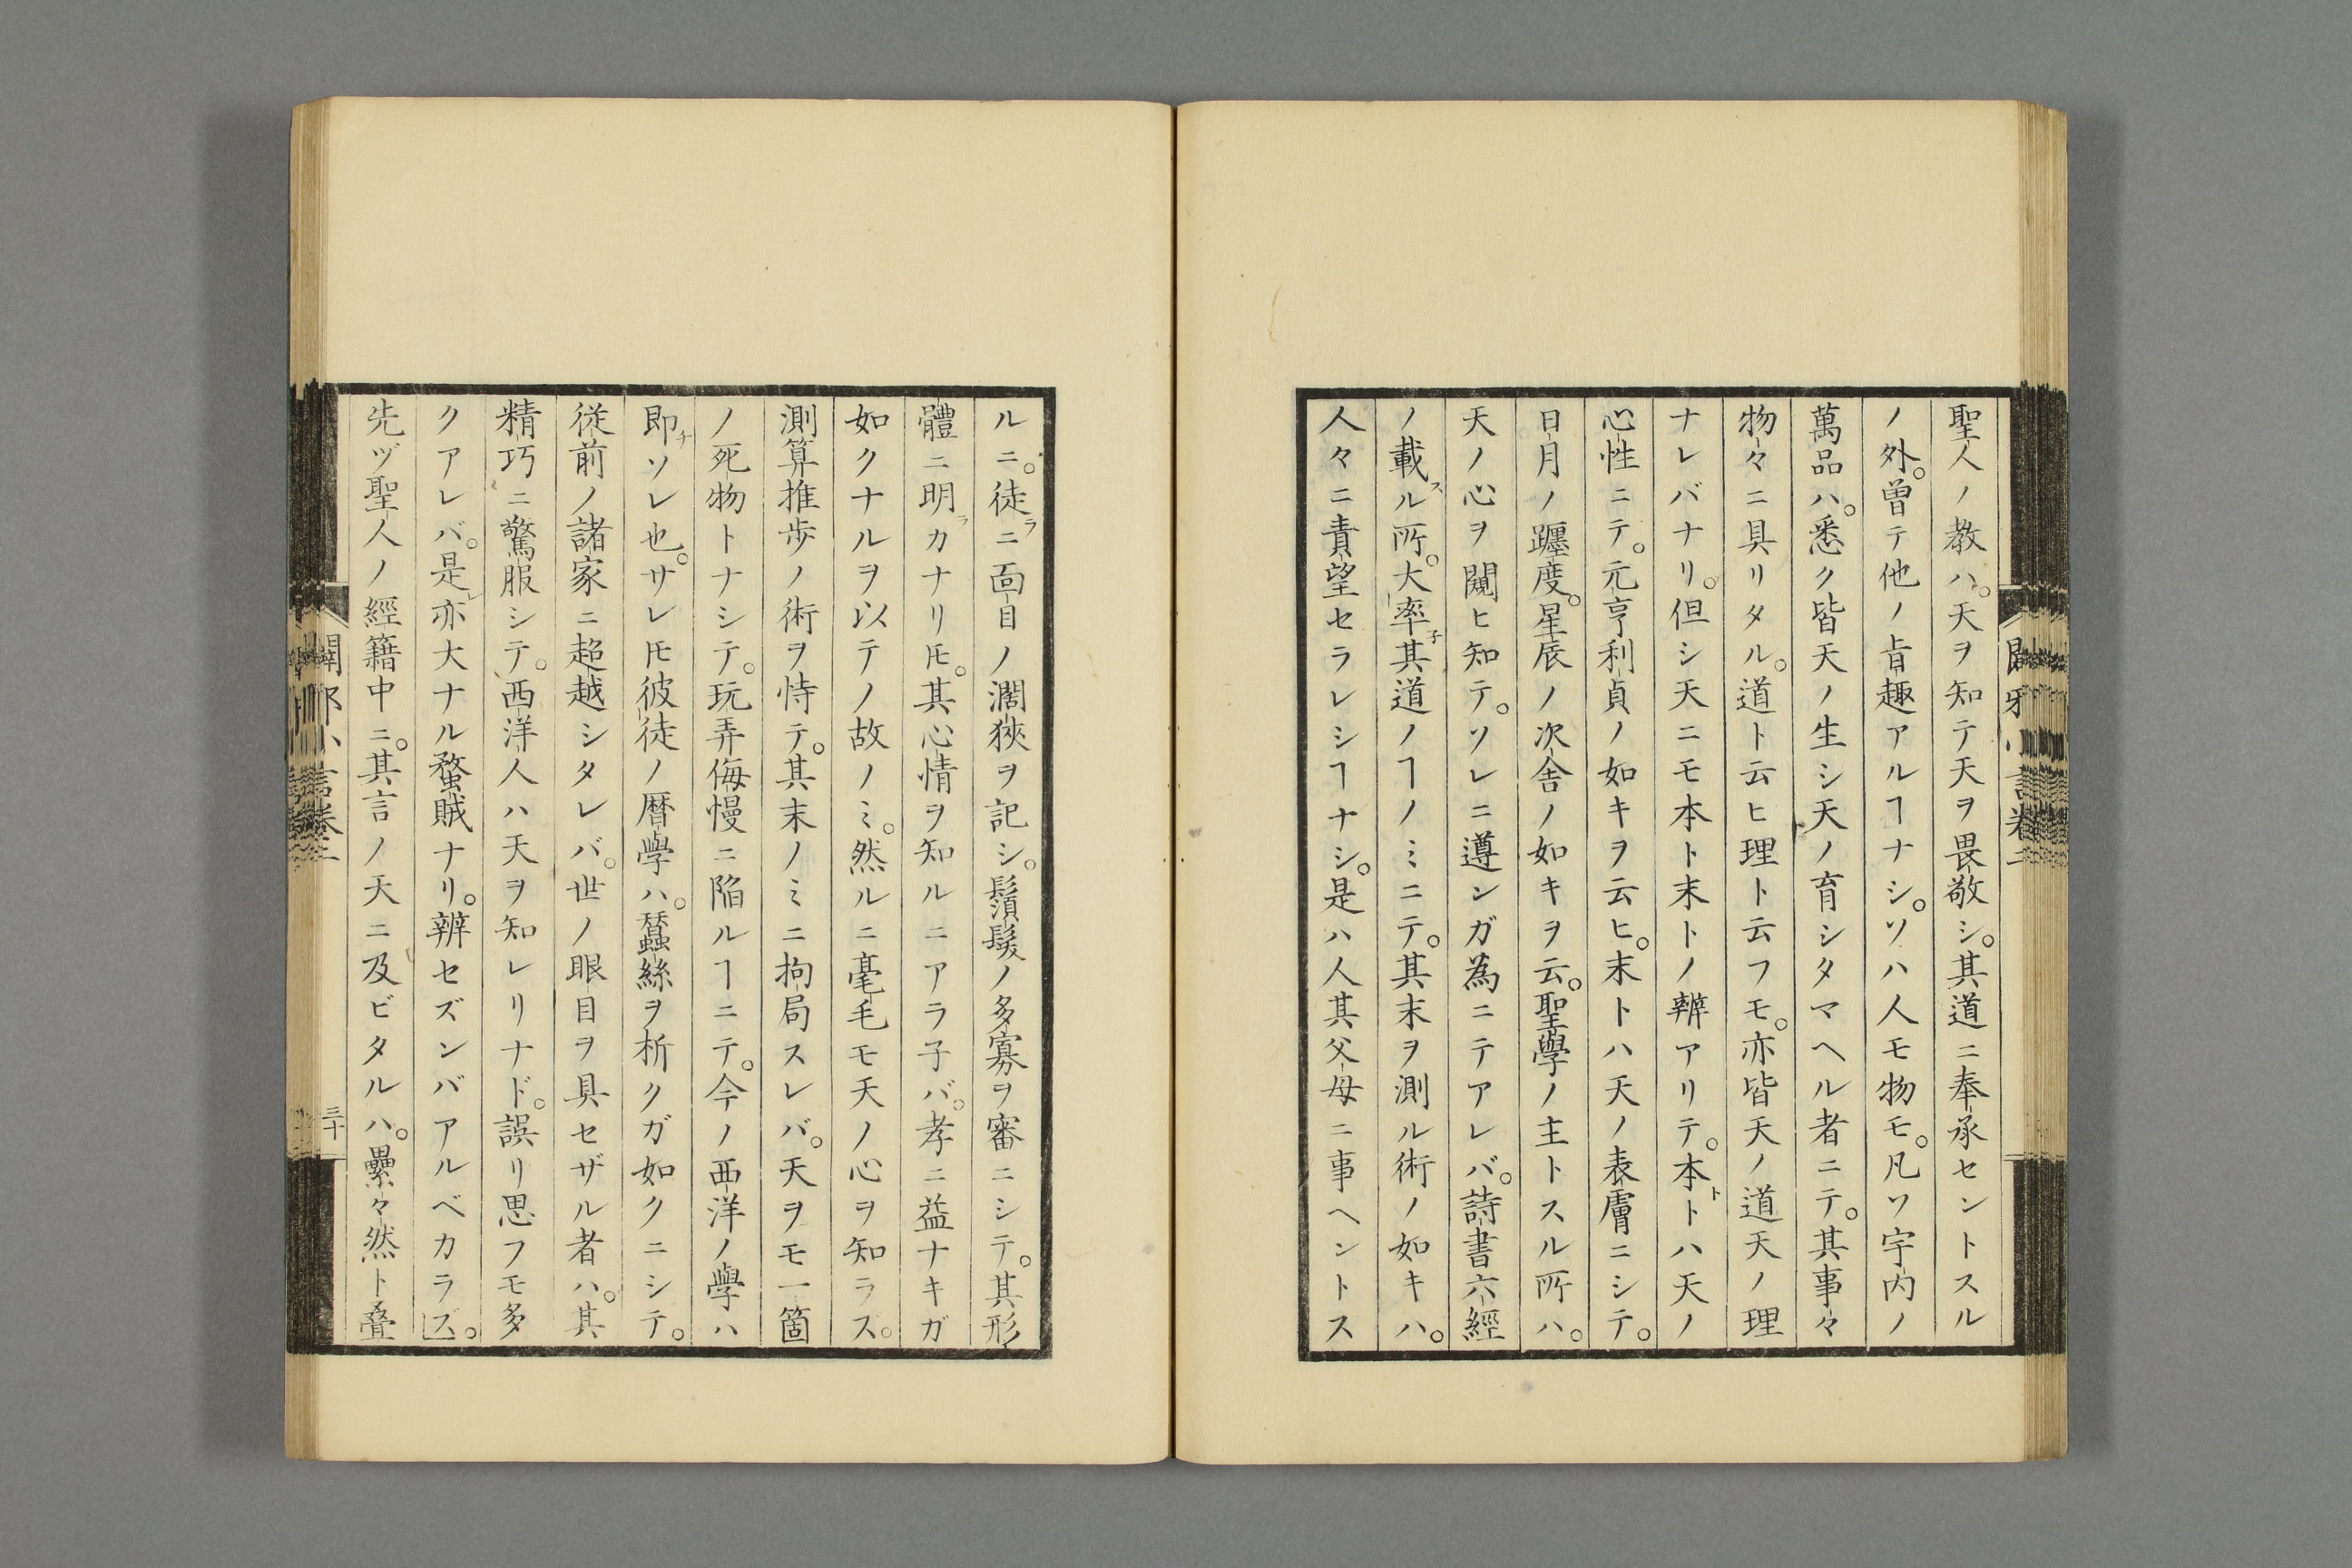 聖人ノ教ハ。天ヲ知テ天ヲ畏敬シ。其道ニ奉承セントスル
ノ外。曽テ他ノ㫖趣アルヿナシ。ソハ人モ物モ。凡ソ宇内ノ
萬品ハ。悉ク皆天ノ生シ天ノ育シタマヘル者ニテ。其事々
物々ニ具リタル。道ト云ヒ理ト云フモ。亦皆天ノ道天ノ理
ナレバナリ。但シ天ニモ本ト末トノ辨アリテ。本トハ天ノ
心性ニテ。元亨利貞ノ如キヲ云ヒ。末トハ天ノ表膚ニシテ。
日月ノ躔度。星辰ノ次舎ノ如キヲ云。聖學ノ主トスル所ハ。
天ノ心ヲ闚ヒ知テ。ソレニ遵ンガ為ニテアレバ。詩書六經
ノ載ル所。大率其道ノヿノミニテ。其末ヲ測ル術ノ如キハ。
人々ニ責望セラレシヿナシ。是ハ人其父母ニ事ヘントス
ルニ。徒ニ面目ノ濶狹ヲ記シ。鬚髮ノ多寡ヲ審ニシテ。其形
體ニ明カナリ𪜈。其心情ヲ知ルニアラ子バ。孝ニ益ナキガ
如クナルヲ以テノ故ノミ。然ルニ毫毛モ天ノ心ヲ知ラス。
測算推歩ノ術ヲ恃テ。其末ノミニ拘局スレバ。天ヲモ一箇
ノ死物トナシテ。玩弄侮慢ニ陥ルヿニテ。今ノ西洋ノ學ハ
即ソレ也。サレ𪜈彼徒ノ暦學ハ。蠶絲ヲ析クガ如クニシテ。
従前ノ諸家ニ超越シタレバ。世ノ眼目ヲ具セザル者ハ。其
精巧ニ驚服シテ。西洋人ハ天ヲ知レリナド。誤リ思フモ多
クアレバ。是亦大ナル蝥賊ナリ。辨セズンバアルベカラズ。
先ヅ聖人ノ經籍中ニ。其言ノ天ニ及ビタルハ。纍々然ト疊
闢邪小言卷二
三十